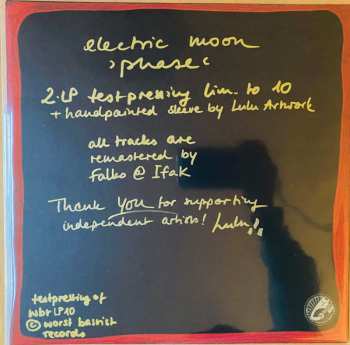 electric moon
›phase‹
2-LP testpressing lim. to 10
+ handpainted sleeve by Lulu Artwork
all tracks are
remastered by
Falko @ Ifak
Thank you for supporting
independent artists! Lulu!!
testpressing of
wbr LP10
© worst bassist
records